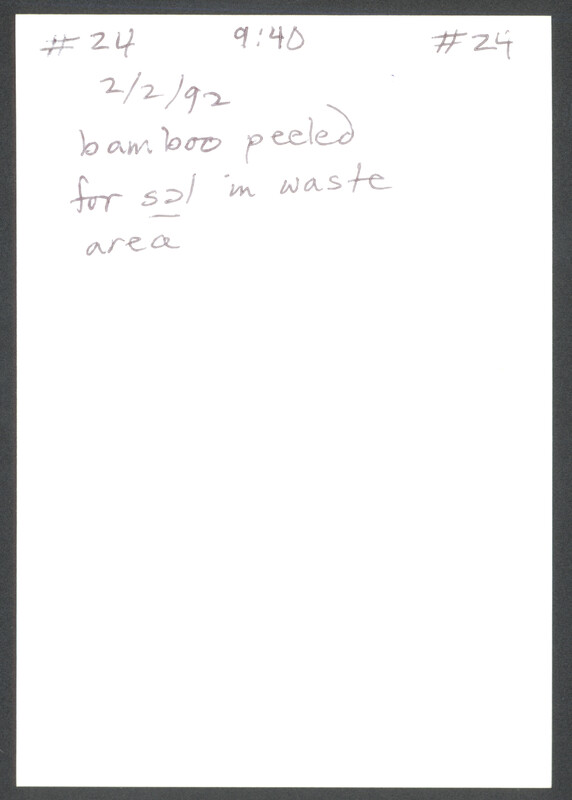 # 24 9:40 # 24
2/2/92
bamboo peeled
for səl in waste
area